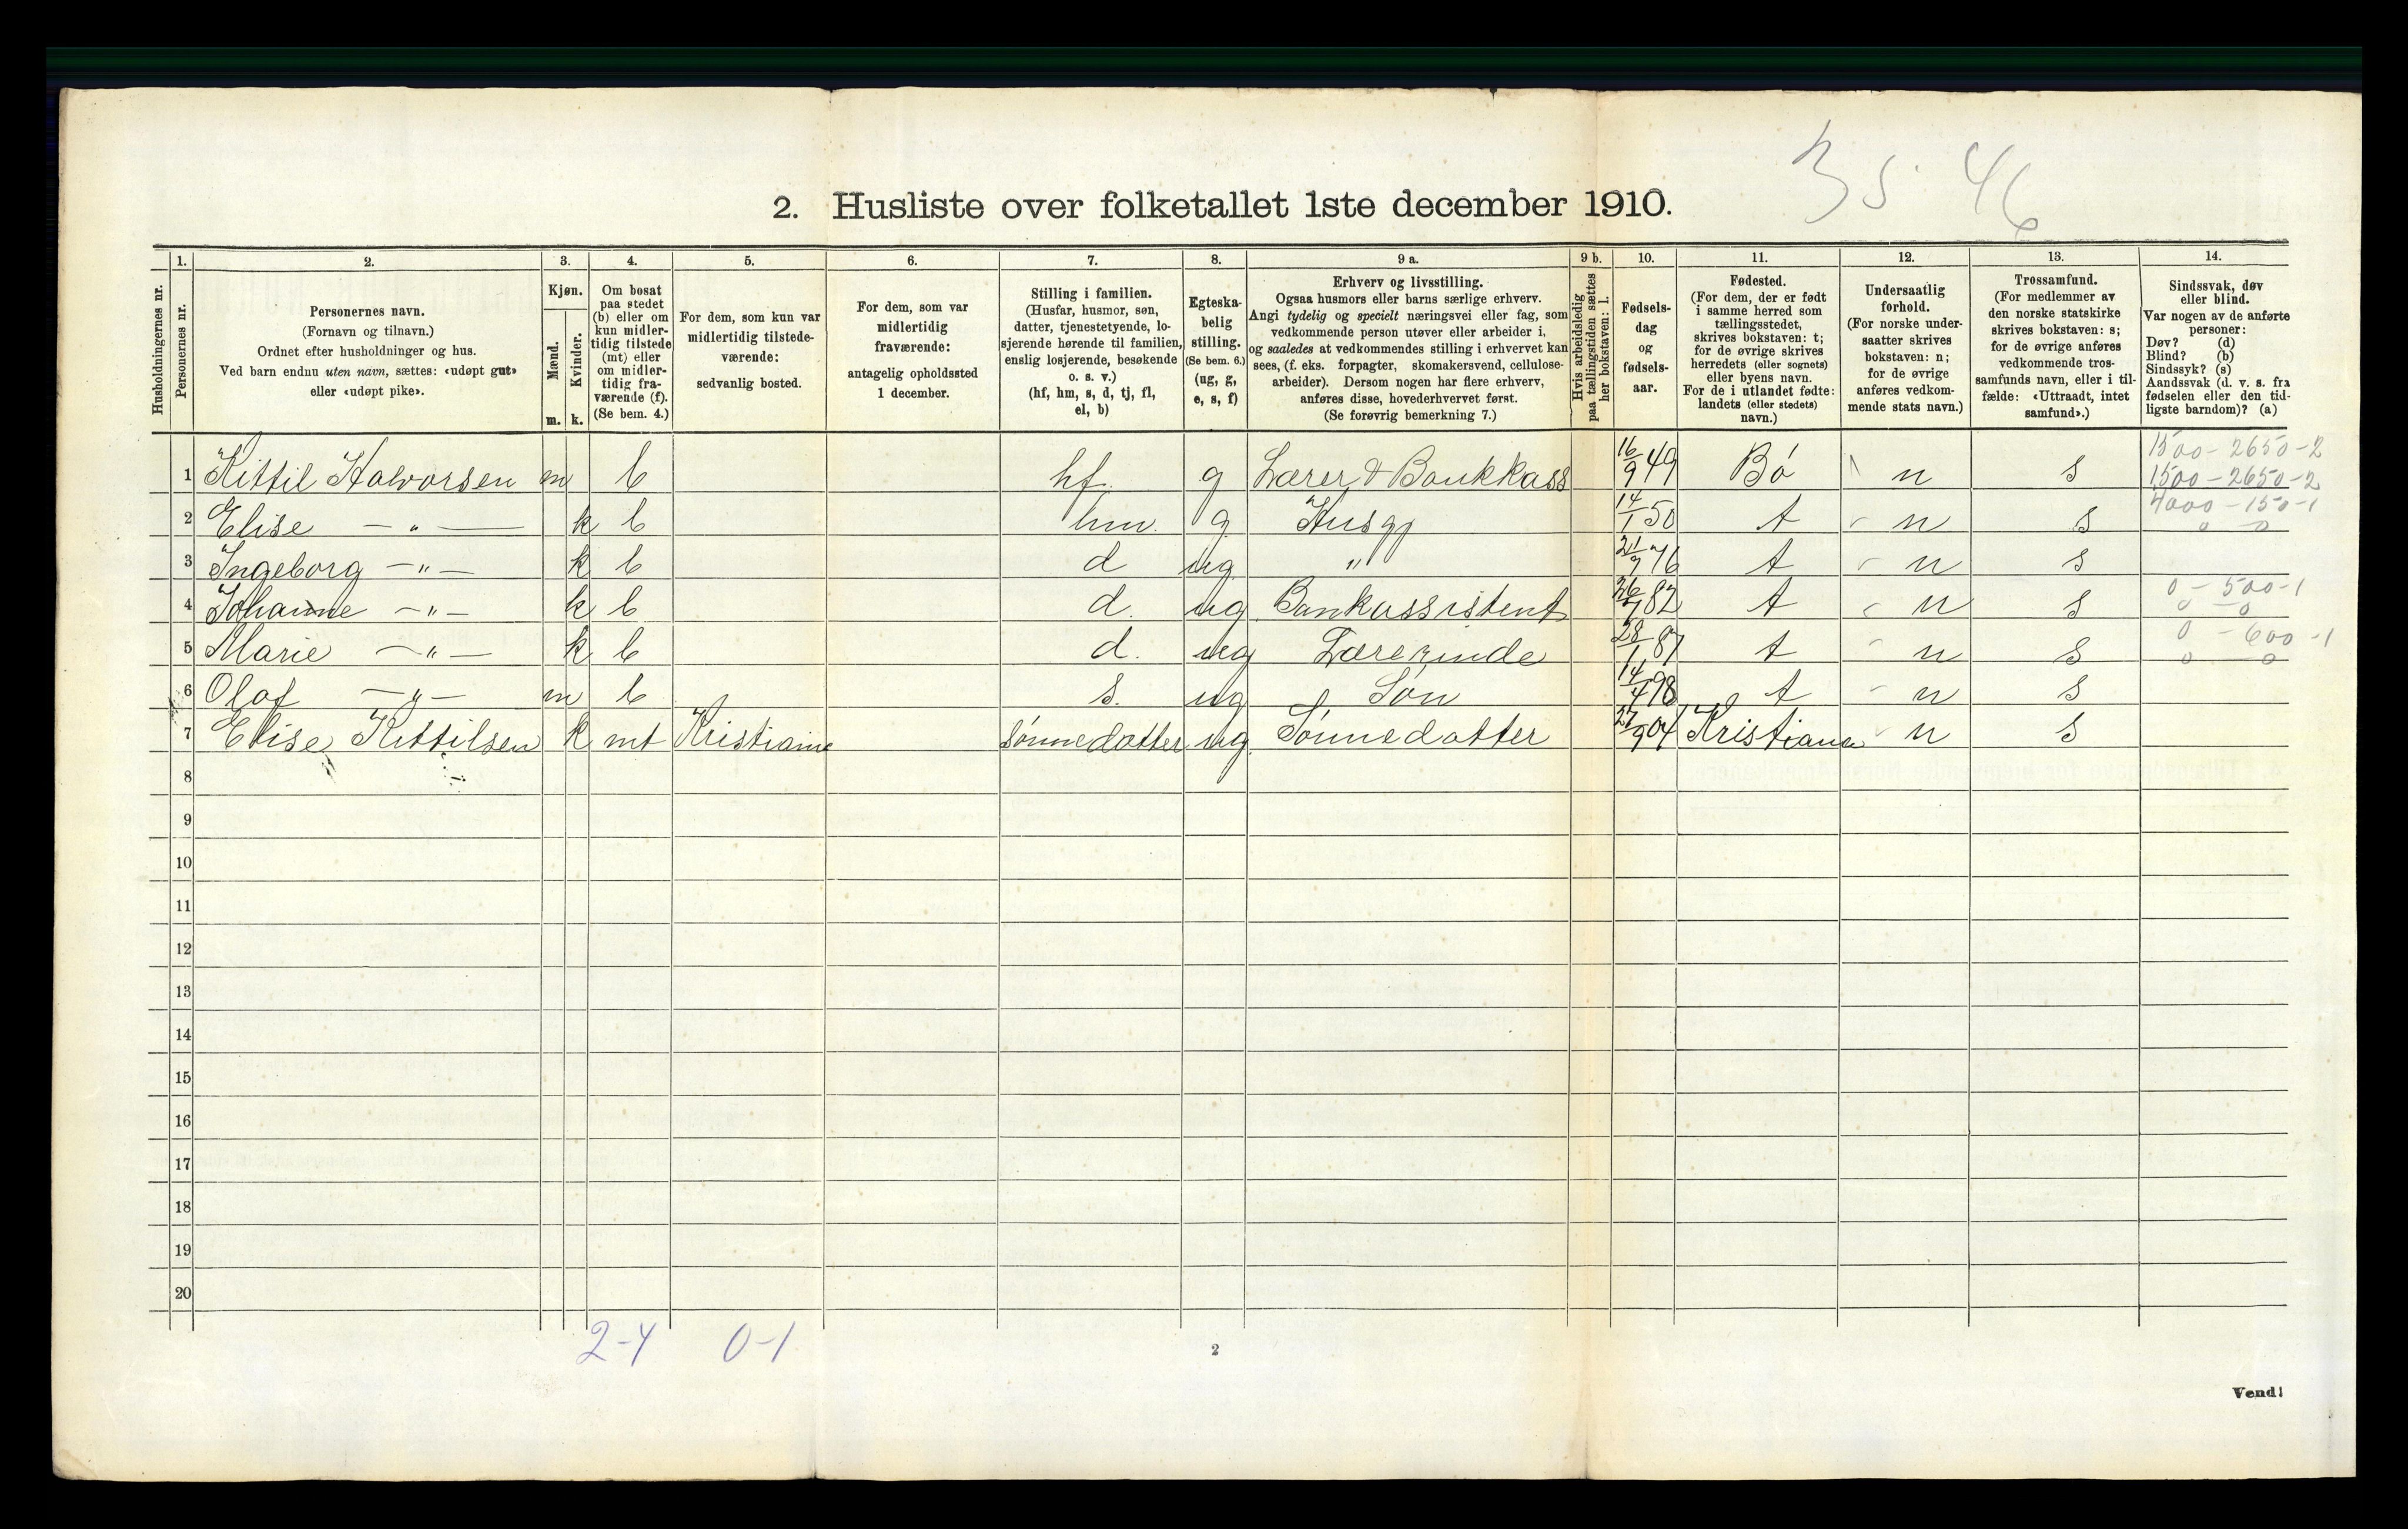 35 46
2. Husliste over folketallet 1ste december 1910.
Husholdningernes nr.
1. Personernes nr.
2. Personernes navn.
(Fornavn og tilnavn.)
Ordnet efter husholdninger og hus.
Ved barn endnu uten navn, sættes: «udøpt gut»
eller «udøpt pike».
3. Kjøn.
Mænd. m.
Kvinder. k.
4. Om bosat
paa stedet
(b) eller om
kun midler-
tidig tilstede
(mt) eller
om midler-
tidig fra-
værende (f).
(Se bem. 4.)
5. For dem, som kun var
midlertidig tilstede-
værende:
sedvanlig bosted.
6. For dem, som var
midlertidig
fraværende:
antagelig opholdssted
1 december.
7. Stilling i familien.
(Husfar, husmor, søn,
datter, tjenestetyende, lo-
sjerende hørende til familien,
enslig losjerende, besøkende
o. s. v.)
(hf, hm, s, d, tj, fl,
el, b)
8. Egteska-
belig
stilling.
(Se bem. 6.)
(ug, g,
e, s, f)
9 a. Erhverv og livsstilling.
Ogsaa husmors eller barns særlige erhverv.
Angi tydelig og specielt næringsvei eller fag, som
vedkommende person utøver eller arbeider i,
og saaledes at vedkommendes stilling i erhvervet kan
sees, (f. eks. forpagter, skomakersvend, cellulose-
arbeider). Dersom nogen har flere erhverv,
anføres disse, hovederhvervet først.
(Se forøvrig bemerkning 7.)
9 b. Hvis arbeidsledig
paa tællingstiden sættes
her bokstaven: l.
10. Fødsels-
dag
og
fødsels-
aar.
11. Fødested.
(For dem, der er født
i samme herred som
tællingsstedet,
skrives bokstaven: t;
for de øvrige skrives
herredets (eller sognets)
eller byens navn.
For de i utlandet fødte:
landets (eller stedets)
navn.)
12. Undersaatlig
forhold.
(For norske under-
saatter skrives
bokstaven: n;
for de øvrige
anføres vedkom-
mende stats navn.)
13. Trossamfund.
(For medlemmer av
den norske statskirke
skrives bokstaven: s;
for de øvrige anføres
vedkommende tros-
samfunds navn, eller i til-
fælde: «Uttraadt, intet
samfund».)
14. Sindssvak, døv
eller blind.
Var nogen av de anførte
personer:
Døv? (d)
Blind? (b)
Sindssyk? (s)
Aandssvak (d. v. s. fra
fødselen eller den tid-
ligste barndom)? (a)
1500-2650-2
1 Kittil Halvorsen m b hf. g Lærer & Bankkass 16/9 49 Bø n s 1500-2650-2
4000-150-1
2 Elise —„— k b hm. g. Husgj 14/1 50 t n s 0 0
3 Ingeborg —„— k b d ug. „ 21/9 76 t n s
0-500-1
4 Johanne —„— k b d. ug. Bankassistent 82 t n s 0 0
0-600-1
5 Marie —„— k b d. ug Lærerinde 28/1 87 t n s 0 0
6 Olaf —„— m b s. ug Søn 14/4 98 t n s
7 Elise Kittilsen k mt Kristiania sønnedatter ug. Sønnedatter 27/9 04 Kristiania n s
8
9
10
11
12
13
14
15
16
17
18
19
20
2-4 0-1
2
Vend!